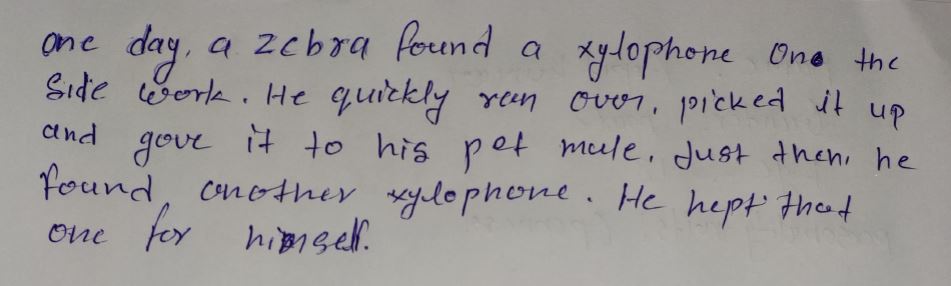 One day, a zebra found a xylophone One the
Side work. He quickly ran over, picked it up
and gove it to his pet mule. Just then, he
found another xylophone. He hept that
one for himself.